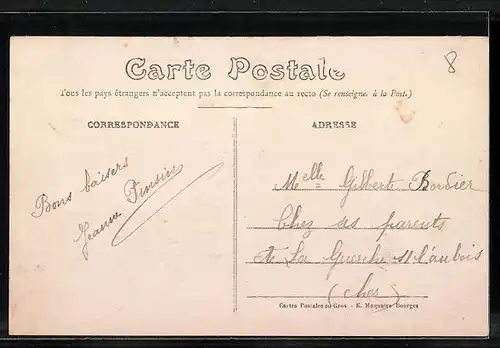 8
Carte Postale
Tous les pays étrangers n'acceptent pas la correspondance au recto (Se renseigner à la Post.)
CORRESPONDANCE
ADRESSE
Bons baisers
Jeanne
Melle Gilberte Bordier
Chez ses parents
La Guerche s/ l'aubois
(Cher)
Cartes Postales en Gros - E. Maquaire Bourges